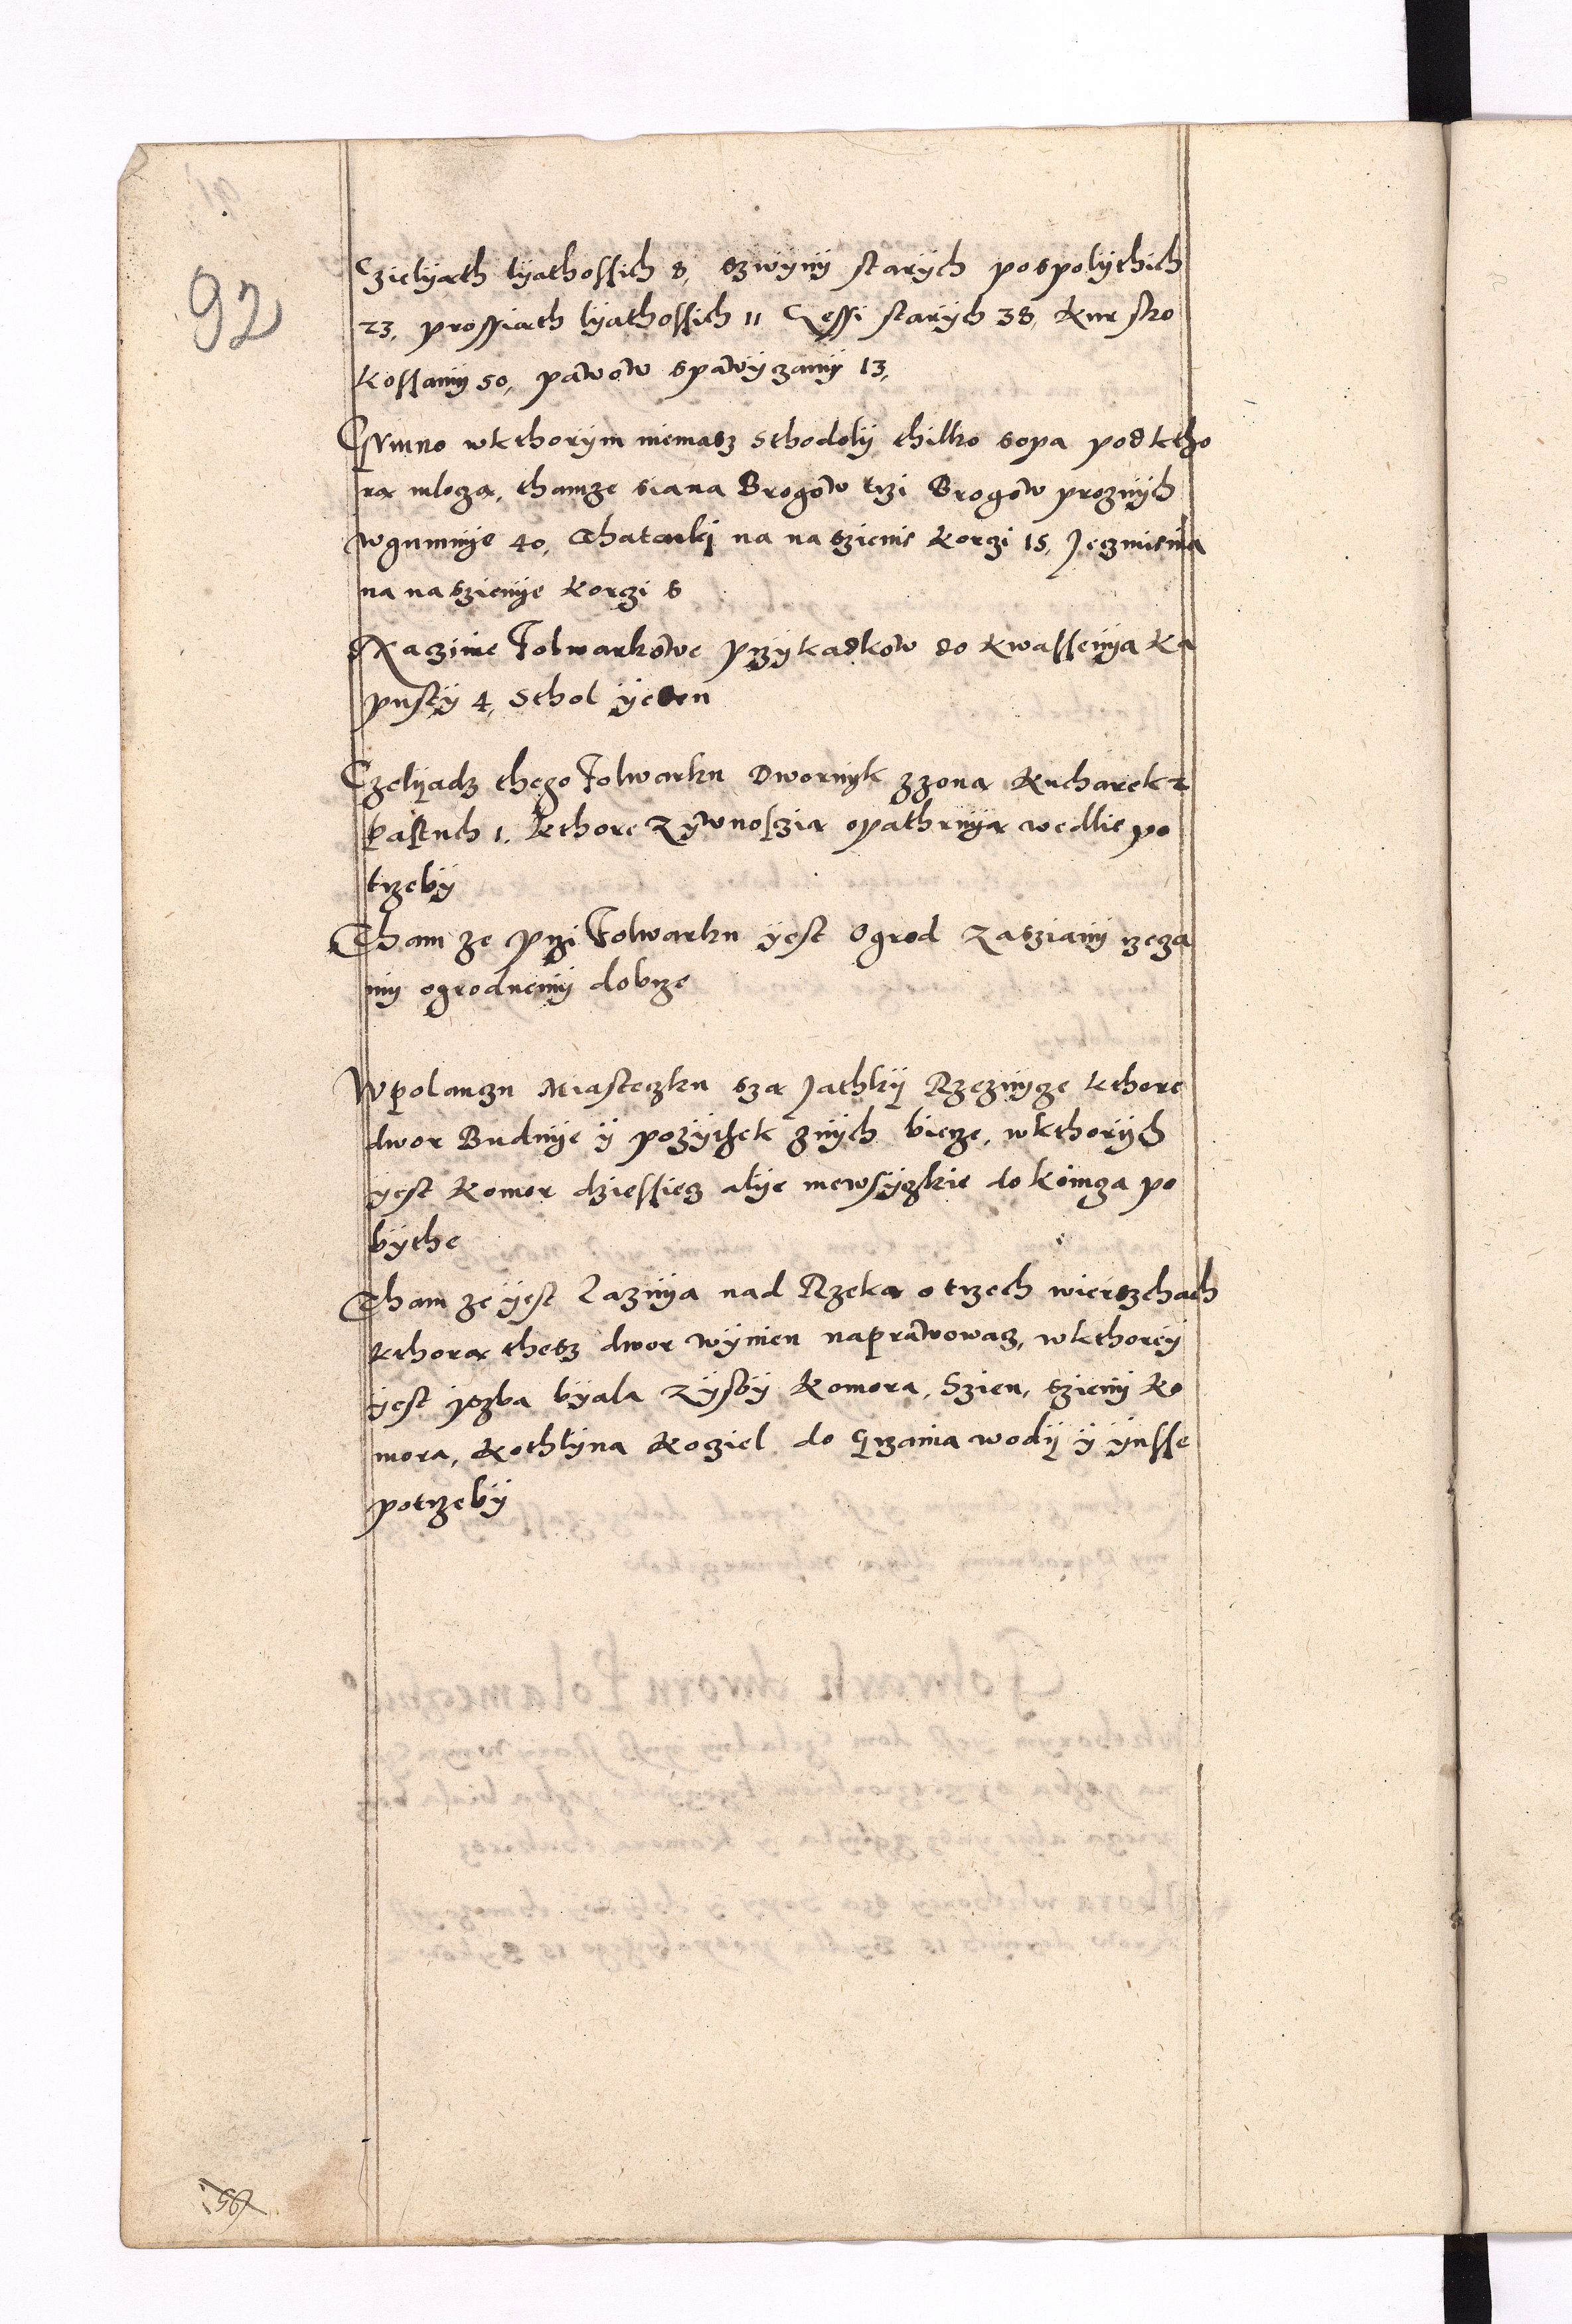 92
Czielyath lyathossich 8, szwyny starych pospolythich
23, prossiath lyathossich 11 Gessi starych 38, Kur sko
kossamy 50, pawow spawyczamy 13,
Gumno wkthorym niemasz Sthodoly thilko sopa podktho
ra mlocza, thamze siana Brogow trzi Brogow proznych
wgumnye 40, Thatarki na na szienie korczi 15, Jeczmienia
na naszienye korczi 6
Naczinie Folwarkowe przykadkow do kwassenya ka
pusty 4, Sthol yeden
Czelyadz thego Folwarku Dwornyk zzona Kucharek 2
Pastuch 1, kthore zywnoszia opathruya wedlie po
trzeby
Tham ze przi Folwarku yest Ogrod zasziany rzecza
my ogrodnemy dobrze
Wpolanczu Miasteczku sza Jathky Rzeznycze kthore
dwor Budnye y pozythek znych bierze, wkthorych
yest komor dziessiecz alye niewszyczkie do koncza po
bythe
Tham ze yest Laznya nad Rzeka o trzech wierszchach
kthora thesz dwor wynien naprawowacz, wkthorey
yest yszba byala z ysby komora, Szien, szieny ko
mora, kothlyna kocziel do grzania wody y ynsse
potrzeby